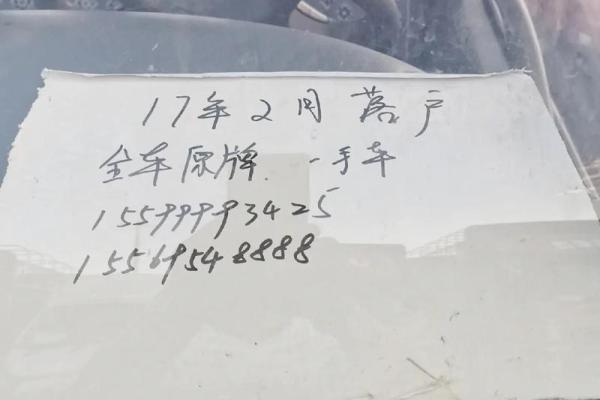 17年2月落户
全车原牌 一手车
15599993425
15569548888